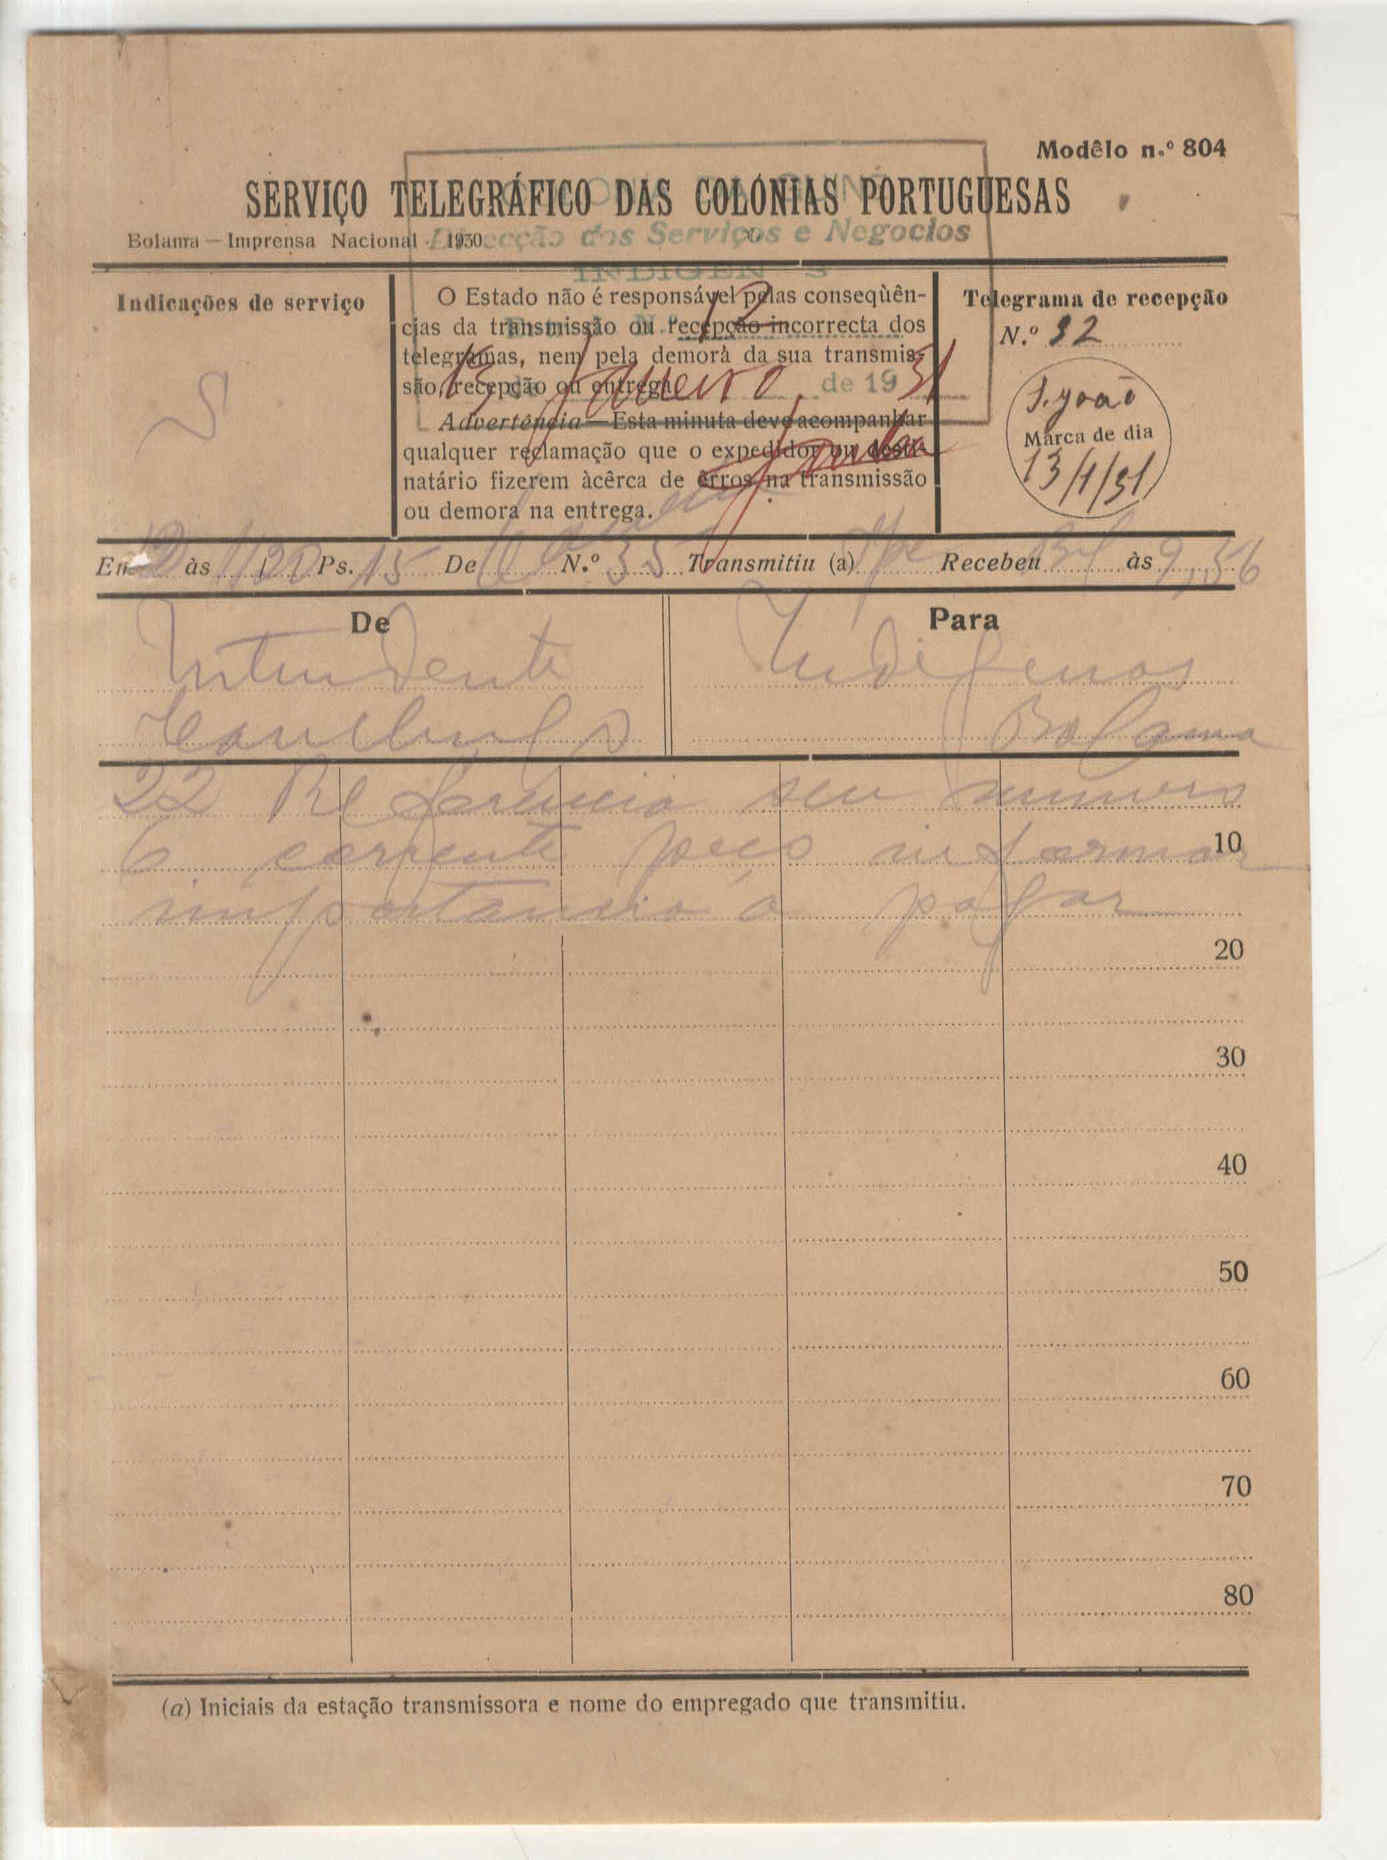 Modêlo n.º 804
SERVIÇO TELEGRÁFICO DAS COLÓNIAS PORTUGUESAS
Bolama — Imprensa Nacional 1930
Direcção dos Serviços e Negocios
INDIGENAS
Indicações de serviço
S
O Estado não é responsável pelas conseqùên-
cias da transmissão ou recepção incorrecta dos
telegramas, nem pela demora da sua transmis-
são, recepção ou entrega.
Advertência—Esta minuta deve acompanhar
qualquer reclamação que o expedidor ou desti-
natário fizerem àcêrca de êrros na transmissão
ou demora na entrega.
12
13 Janeiro de 1931
Telegrama de recepção
N.º 32
S. João
Marca de dia
13/1/31
Em 12 às 1120 Ps. 15 De N.º 35 Transmitiu (a) Recebeu às 9,56
De
Para
Intendente
Indigenas
Canchungo
Bolama
22 Referencia seu numero
6 corrente peço informar
10
importancia a pagar
20
30
40
50
60
70
80
(a) Iniciais da estação transmissora e nome do empregado que transmitiu.